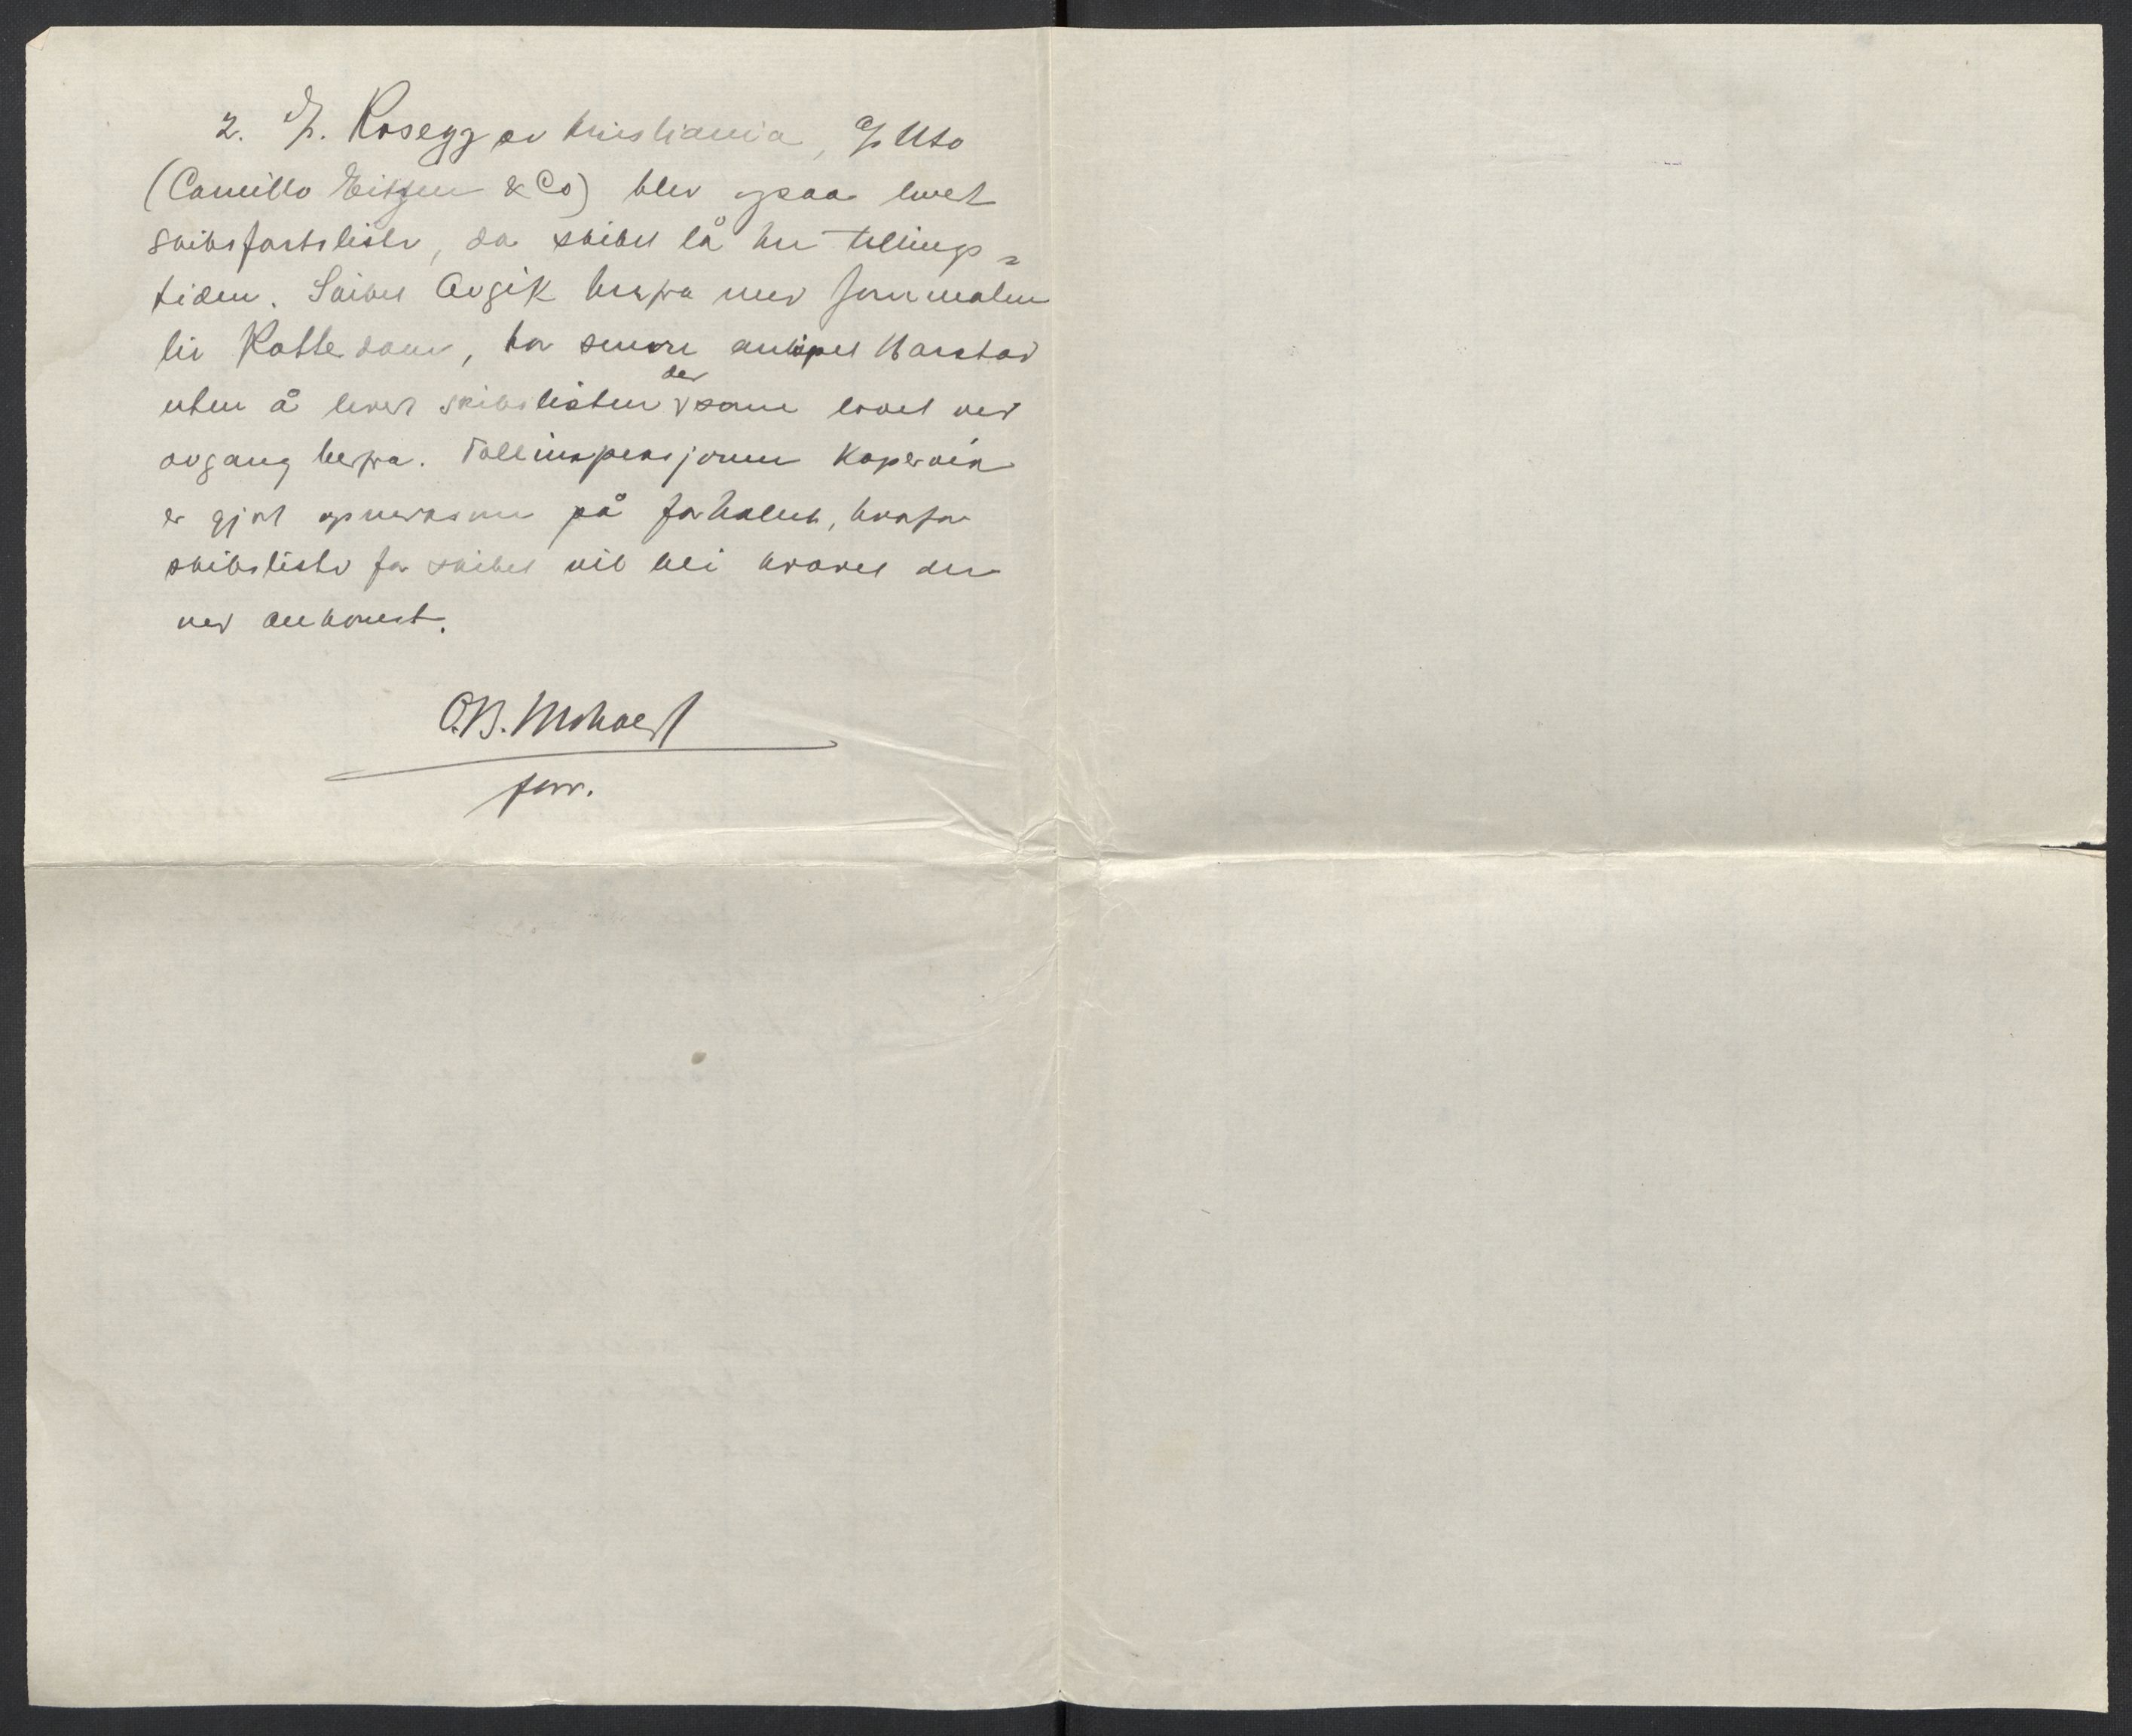 2. D/s. Rosegg av Kristiania, A/S Uto
(Camillo Eitzen & Co) blev ogsaa lovet
skibsfartsliste, da skibet lå her tellings=
tiden. Skibet avgik herfra med jernmalm
til Rotterdam, har senere anløpet Harstad
uten å levert skibslisten der som lovet ved
avgang herfra. Tollinspeksjonen Kopervik
er gjort opmerksom på forholdet, hvorfor
skibsliste for skibet vil bli krævet der
ved ankomst.
O.B.
forv.